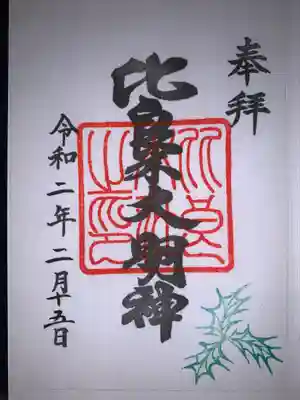 奉拝
比良木大明神
令和二年二月十五日